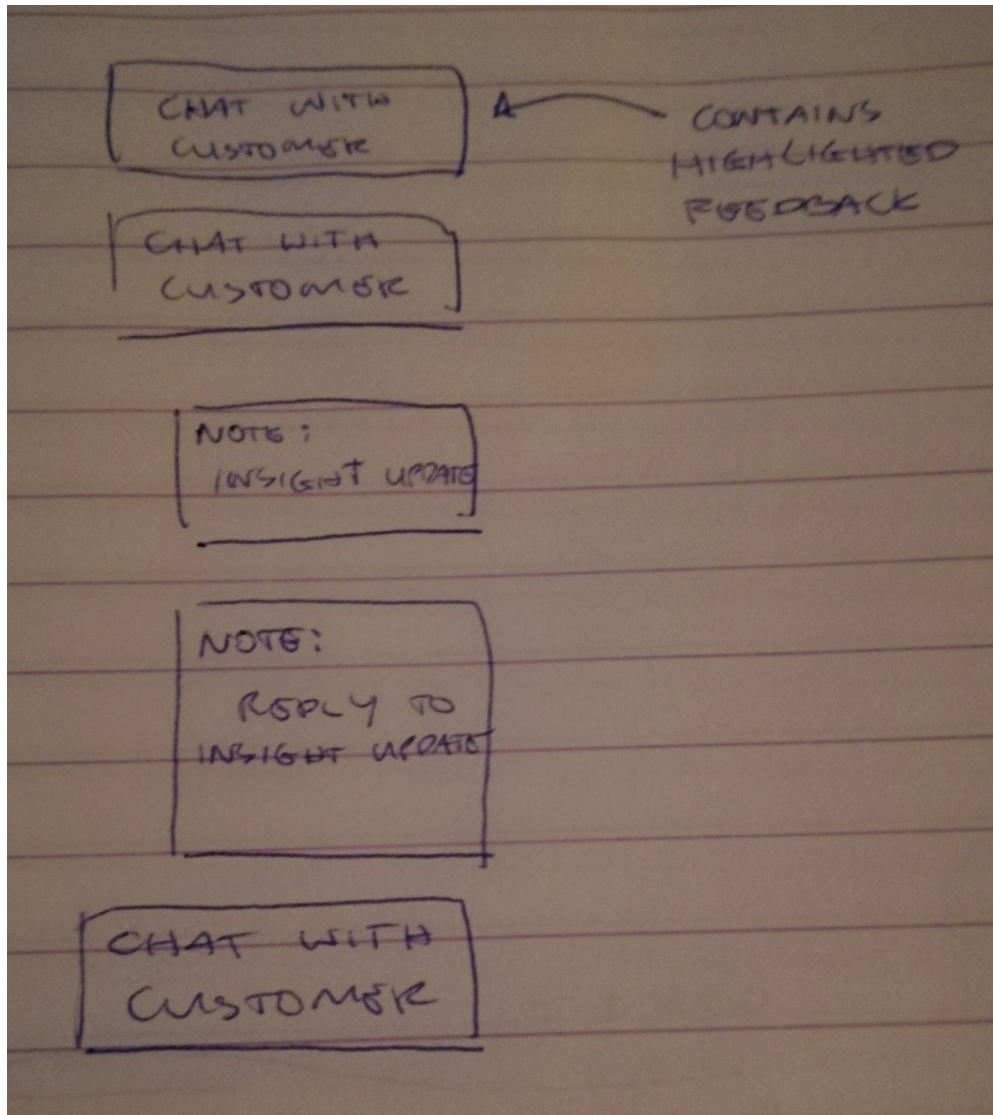 CHAT WITH
CUSTOMER
CONTAINS
HIGHLIGHTED
FEEDBACK
CHAT WITH
CUSTOMER
NOTE:
INSIGHT UPDATE
NOTE:
REPLY TO
INSIGHT UPDATE
CHAT WITH
CUSTOMER